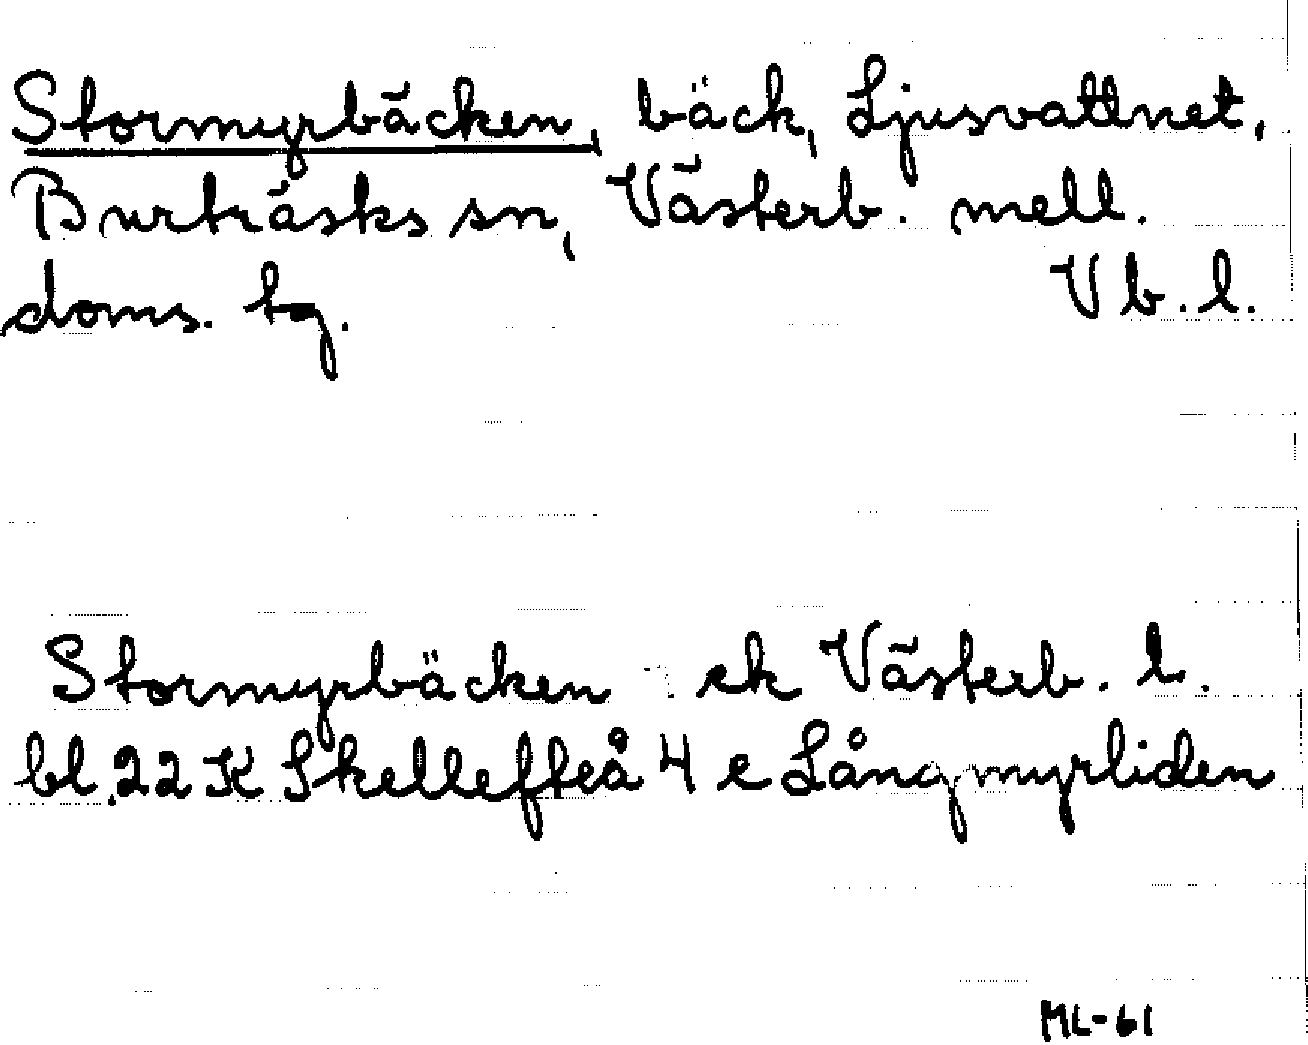 Stormyrbäcken, bäck, Ljusvattnet,
Burträsks sn, Västerb. mell.
doms. tg. Vb. l.
Stormyrbäcken ek Västerb. l.
bl. 22 K Skellefteå 4 e Långmyrliden
ML-61